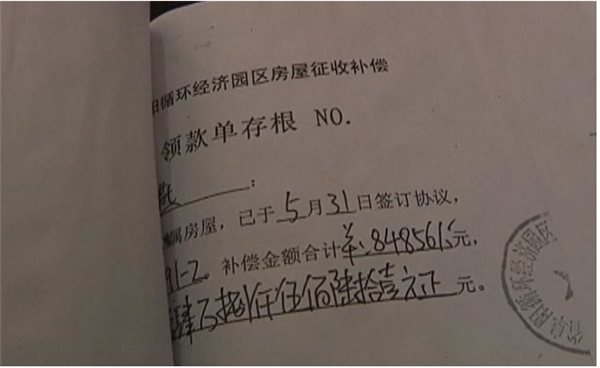 阳循环经济园区房屋征收补偿
领款单存根 NO.
:
属房屋，已于5月31日签订协议，
91-2。补偿金额合计￥:848561元，
肆万捌仟伍佰陆拾壹元正元。
省阜阳循环经济园区